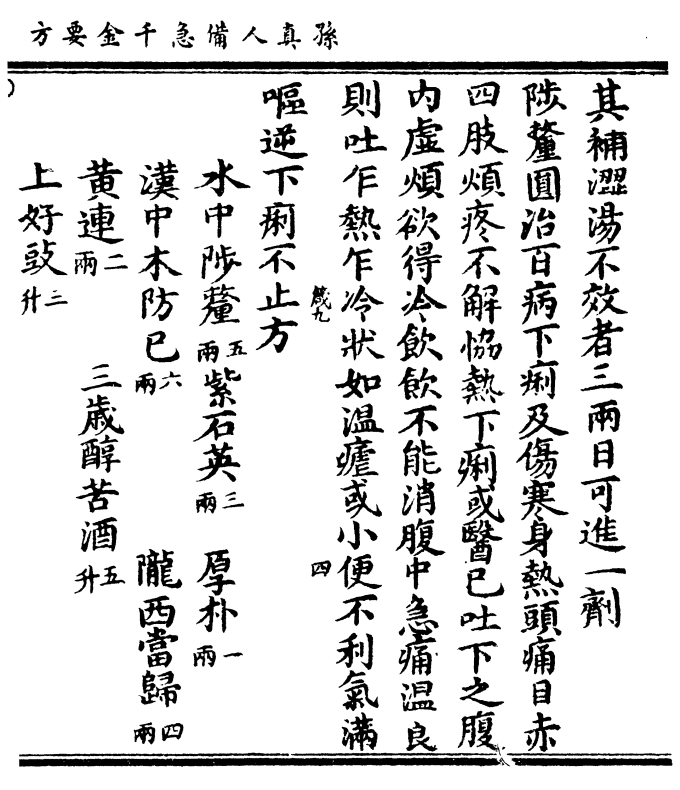 孫真人備急千金要方
其補澀湯不效者三兩日可進一劑
陟釐圓治百病下痢及傷寒身熱頭痛目赤
四肢煩疼不解恊熱下痢或醫已吐下之腹
內虛煩欲得冷飲飲不能消腹中急痛温良
則吐乍熱乍冷狀如温瘧或小便不利氣滿
嘔逆下痢不止方
箴九
四
水中陟釐五兩 紫石英三兩 厚朴一兩
漢中木防已六兩 隴西當歸四兩
黃連二兩 三歲醇苦酒五升
上好豉三升